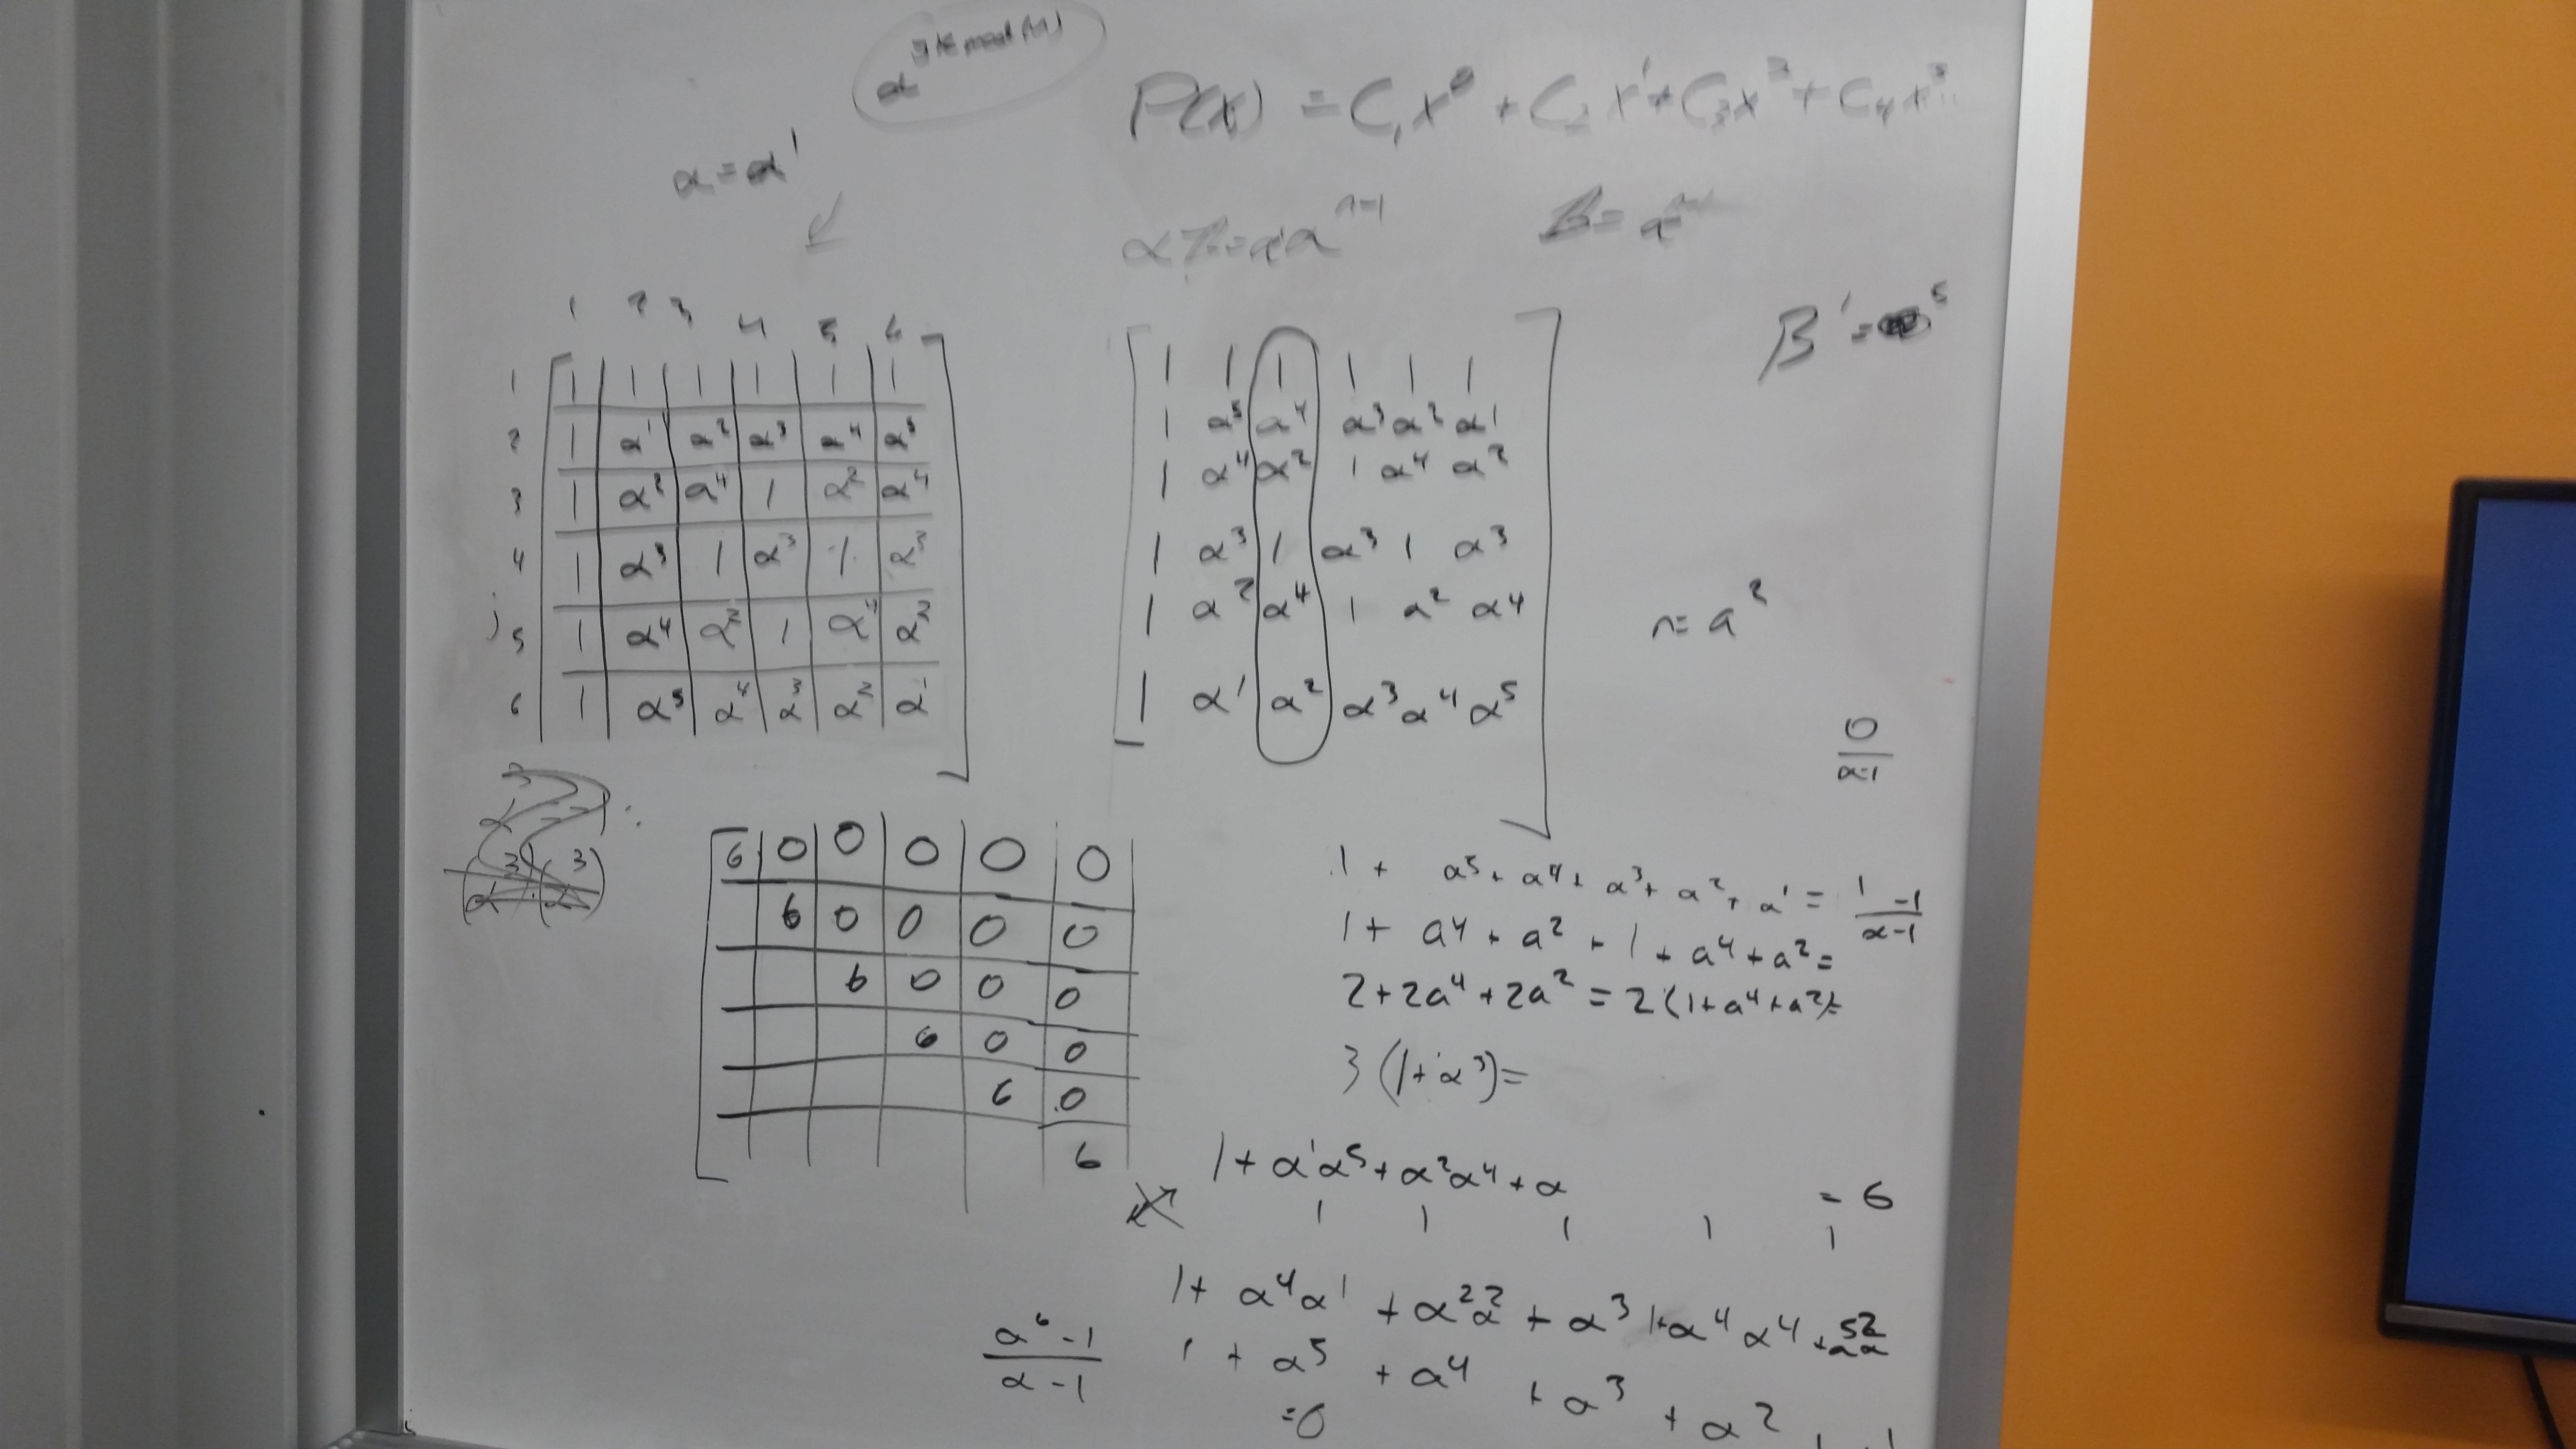 α = α¹
P(x) = C₁x⁰ + C₂x¹ + C₃x² + C₄x³
B = a
n-1
β¹ =
1 2 3 4 5 6
1 1 1 1 1 1 1
2 1 α¹ α² α³ α⁴ α⁵
3 1 α² α⁴ 1 α² α⁴
4 1 α³ 1 α³ 1 α³
j 5 1 α⁴ α² 1 α⁴ α²
6 1 α⁵ α⁴ α³ α² α¹
1 1 1 1 1 1
1 α⁵ α⁴ α³ α² α1
1 α⁴ α² 1 α⁴ α²
1 α³ 1 α³ 1 α³
1 α² α⁴ 1 α² α4
1 α¹ α² α³ α⁴ α⁵
n = a²
0
α-1
6 0 0 0 0 0
6 0 0 0 0
6 0 0 0
6 0 0
6 0
6
1 + α⁵ + α⁴ + α³ + α² + α¹ = 1 -1
α-1
1 + α⁴ + α² + 1 + α⁴ + α² =
2 + 2α⁴ + 2α² = 2(1+α⁴+α²) =
3(1+α³) =
1 + α¹α⁵ + α²α⁴ + α = 6
1 1 1 1 1
1 + α⁴α¹ + α²α² + α³1 + α⁴α⁴ +
α⁶ - 1
α - 1
1 + α⁵ + α⁴ + α³ + α²
= 0